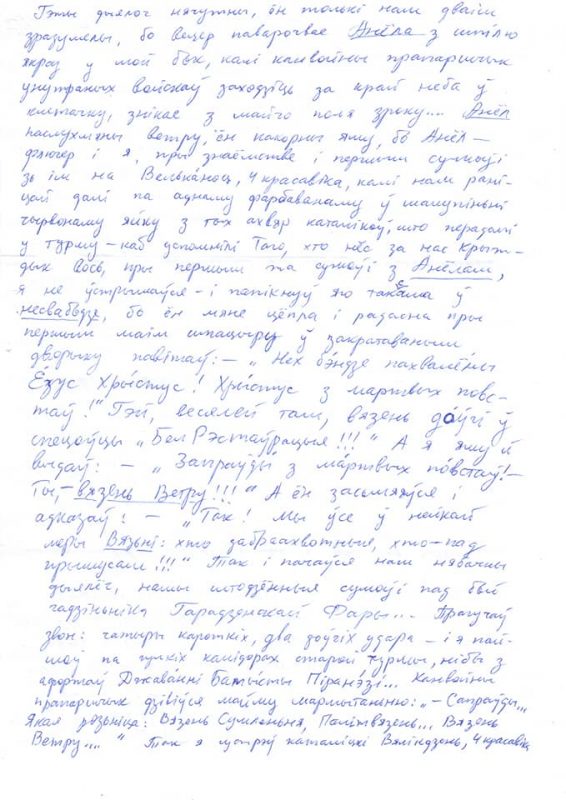 Гэты дыялог нячутны, ён толькі нам дваім
зразумелы, бо вецер паварочвае Анёла з шпілю
якраз у мой бок, калі канвойны прапаршчык
унутраных войскаў заходзіць за край неба ў
клетачку, знікае з майго поля зроку... Анёл
паслухмяны ветру, ён пакорны яму, бо Анёл –
флюгер і я, пры знаёмстве і першым сумоўі
зь ім на Вялікдзень, 4 красавіка, калі нам рані-
цай далі па аднаму фарбаванаму ў шалупіньні
чырвонаму яйку з тых ахвяр католікоў, што перадалі
у турму – каб успомнілі Таго, хто нёс за нас Крыж –
дык вось, пры першым та сумоўі з Анёлам,
я не ўстрымаўся – і папікнуў яго таксама ў
несвабодзе, бо ён мяне цёпла і радасна пры
першым маім шпацыры ў закратаваным
дворыку павітаў: – „Нех бэ́ндзе пахвалёны
Е́зус Хры́стус! Хры́стус з мартвых повс-
таў!" Гэй, веселей там, вязень доўгі ў
спецоўцы „БелРэстаўрацыя!!!" А я яму й
выдаў: – „Запраўды з ма́ртвых по́встаў! –
Ты, – вязень Ветру!!!" А ён засьмяяўся і
адказаў: – „Так! Мы ўсе ў нейкай
меры Вязьні: хто забраахвотныя, хто – пад
прымусам!!!" Так і пачаўся наш нябачны
дыялёг, нашы штодзённыя сумоўі пад бой
гадзіньніка Гарадзенскай Фары... Прагучаў
звон: чатыры кароткіх, два доўгіх удара – і я пай-
шоў па гулкіх калідорах старой турмы, нібы з
афортаў Джаванні Батысты Піранэзі... Канвойны
прапаршчык дзівіўся майму мармытаньню: „– Сапраўды...
Якая розьніца: Вязень Сумленьня, Палітвязень... Вязень
Ветру...." Так я сустрэў каталіцкі Вялікдзень, 4 красавіка